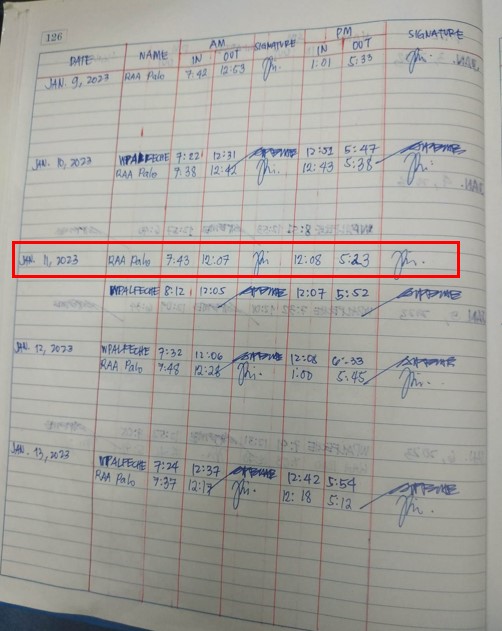 126
DATE NAME AM IN OUT SIGNATURE PM IN OUT SIGNATURE
JAN. 9, 2023 RAA Palo 7:42 12:53 1:01 5:33
JAN. 10, 2023 WPALFECHE 7:22 12:31 12:32 5:47
RAA Palo 7:38 12:42 12:43 5:38
JAN. 11, 2023 RAA Palo 7:43 12:07 12:08 5:23
WPALFECHE 8:12 12:05 12:07 5:52
JAN. 12, 2023 WPALFECHE 7:32 12:06 12:08 6:33
RAA Palo 7:48 12:28 1:00 5:45
JAN. 13, 2023 WPALFECHE 7:24 12:37 12:42 5:54
RAA Palo 7:37 12:17 12:18 5:12